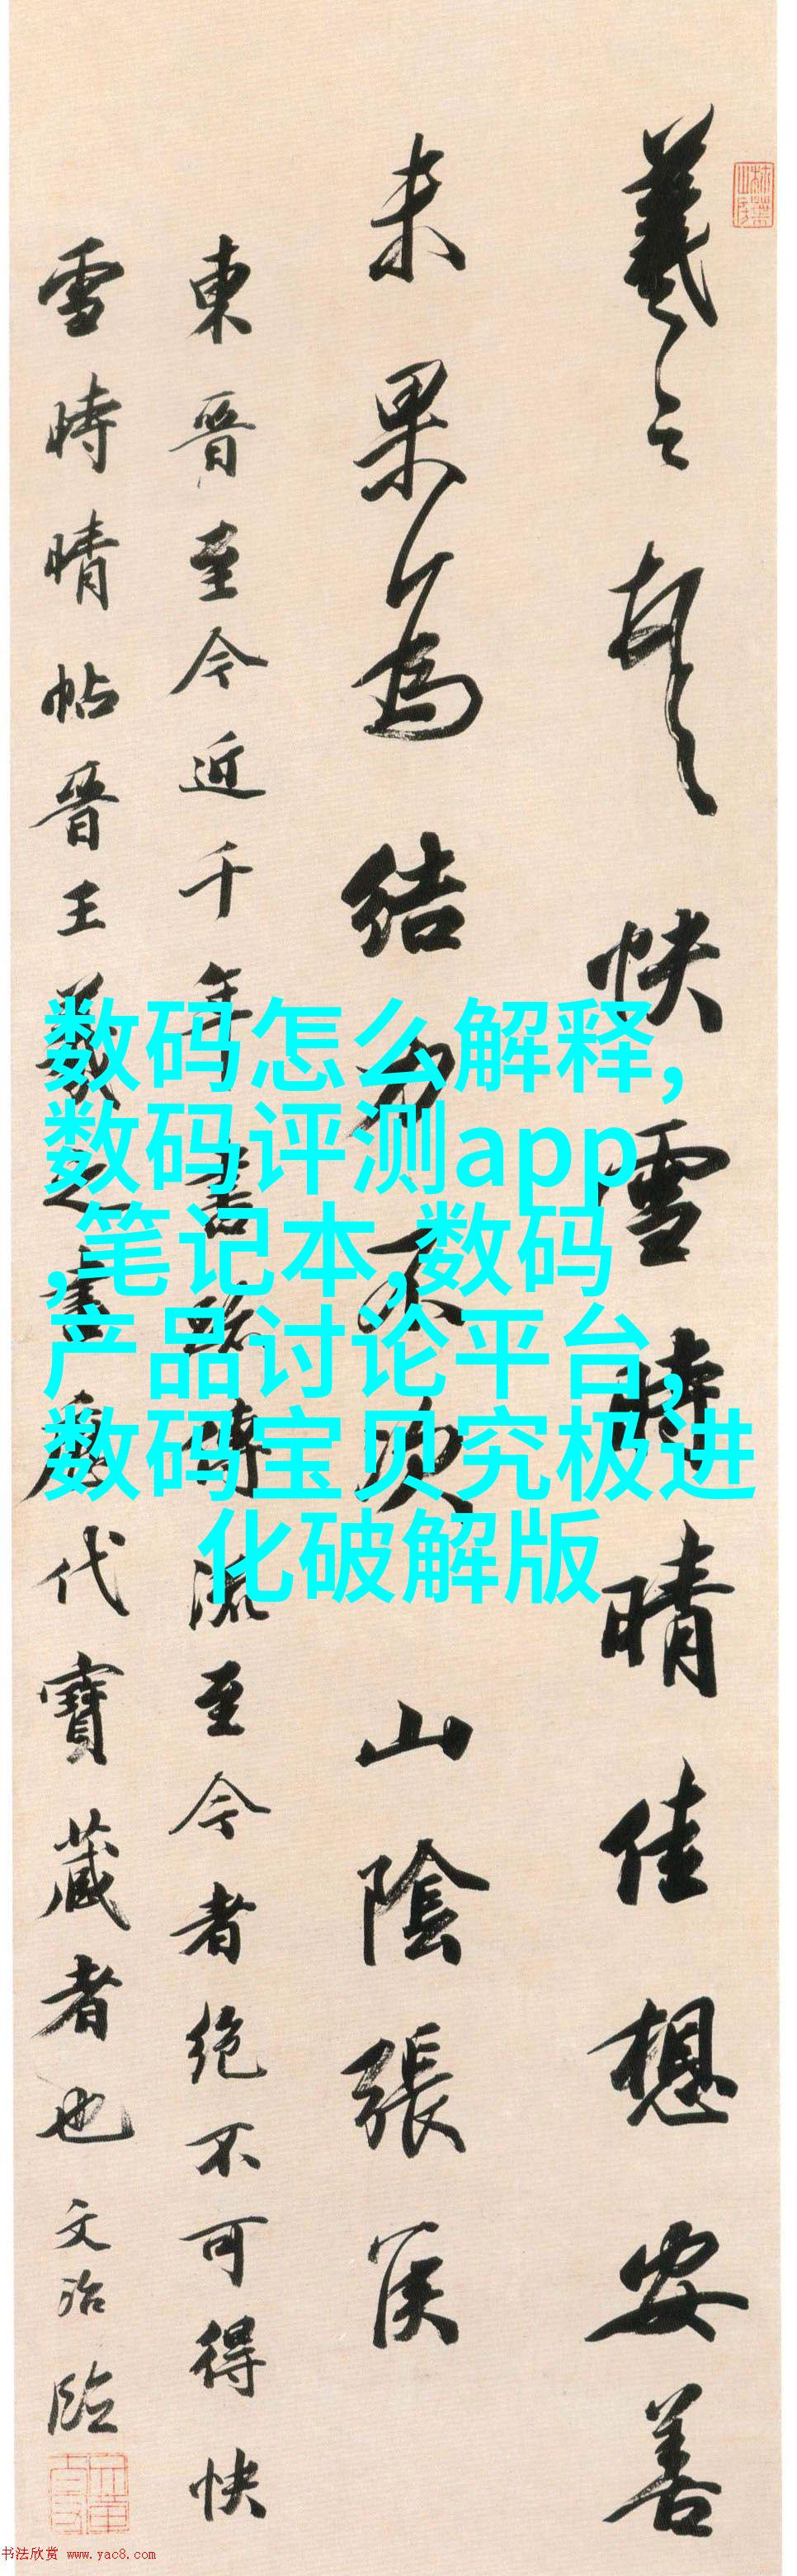 羲之頓首快雪時晴佳想安善
未果為結力不次山陰張侯
東晉至今近千年書跡傳流至今者絕不可得快
雪時晴帖晉王羲之書歷代寶藏者也文治臨
数码怎么解释,
数码评测app
,笔记本,数码
产品讨论平台,
数码宝贝究极进
化破解版
书法欣赏 www.yac8.com